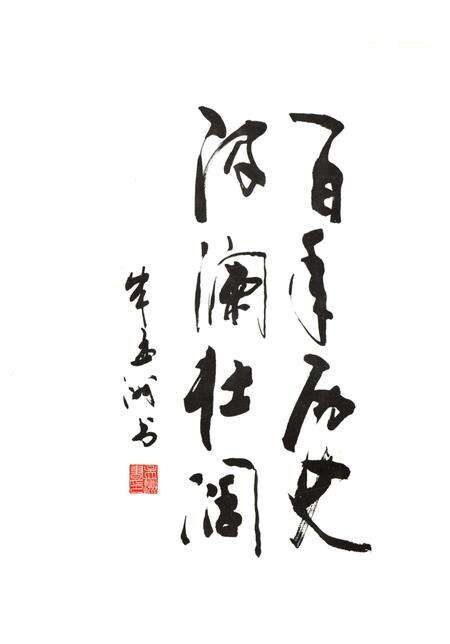 百年历史
波澜壮阔